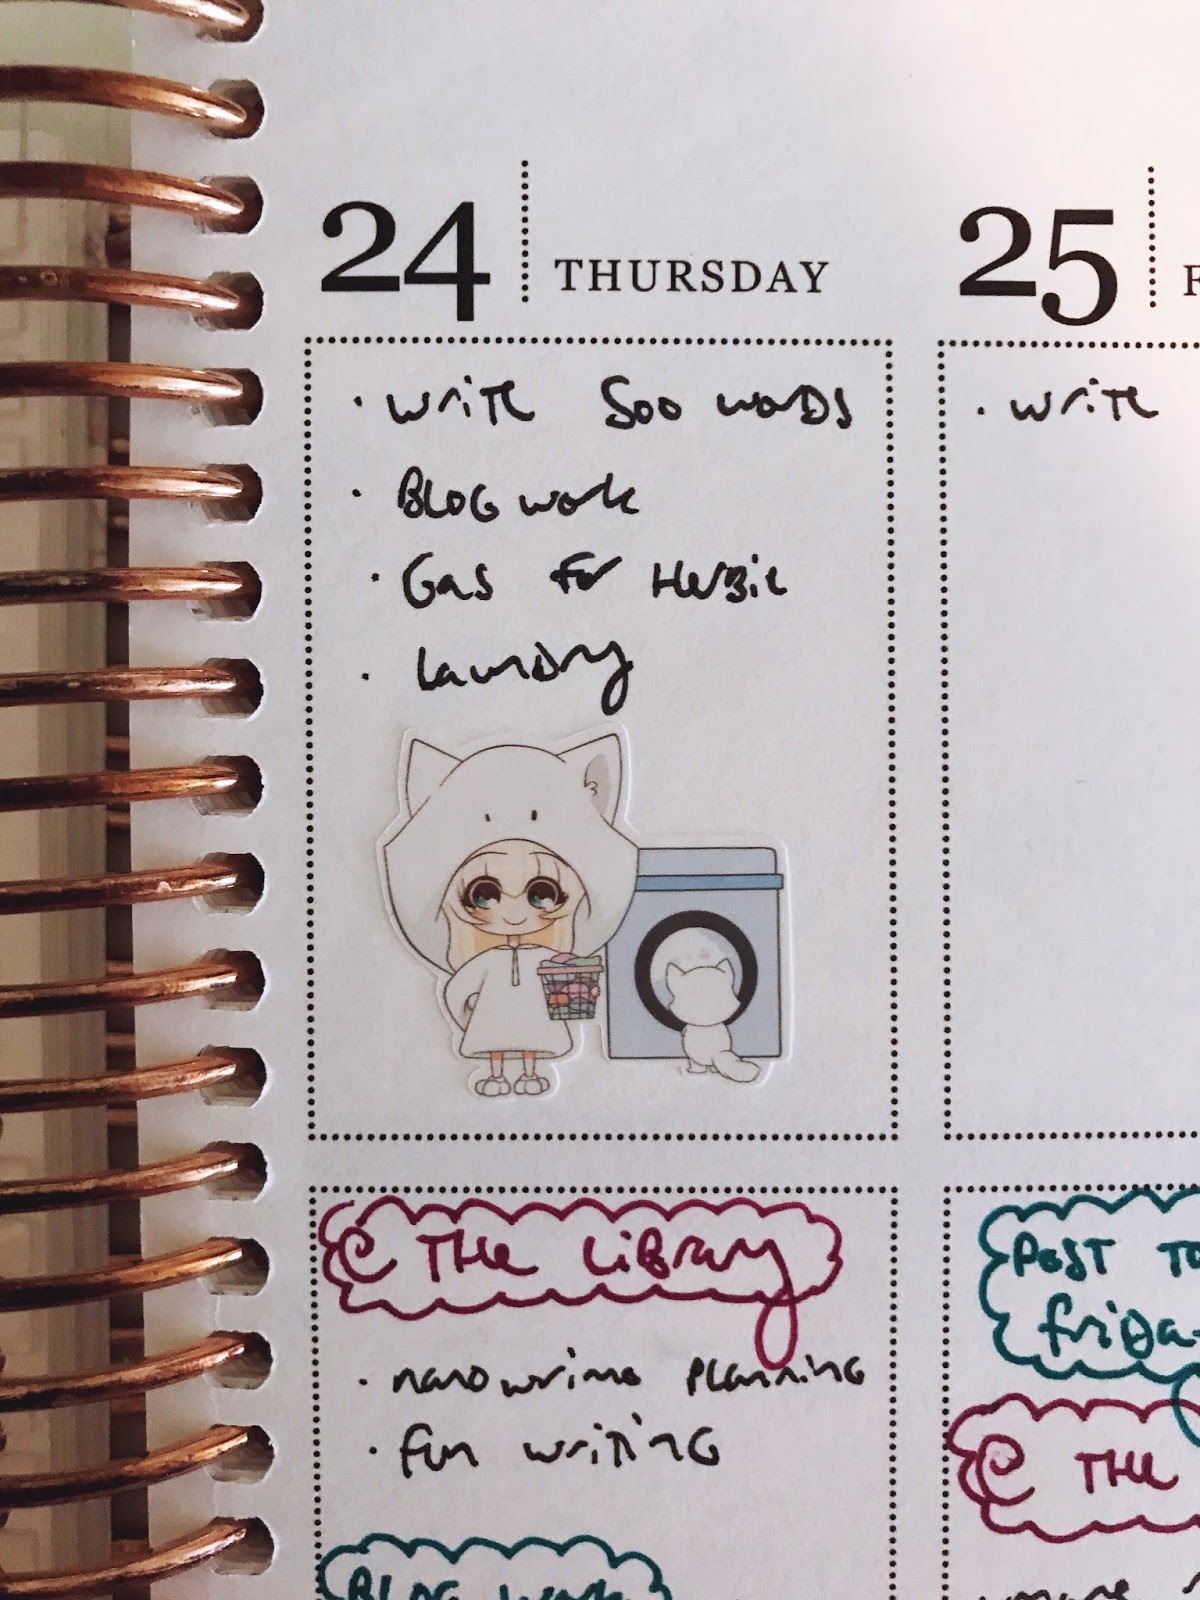 24 THURSDAY
· write 500 words
· Blog work
· Gas for Herbie
· laundry
@ THE Library
· nanowrimo planning
· fun writing
Blog work
25 F
· write
POST TO
frida
@ THE